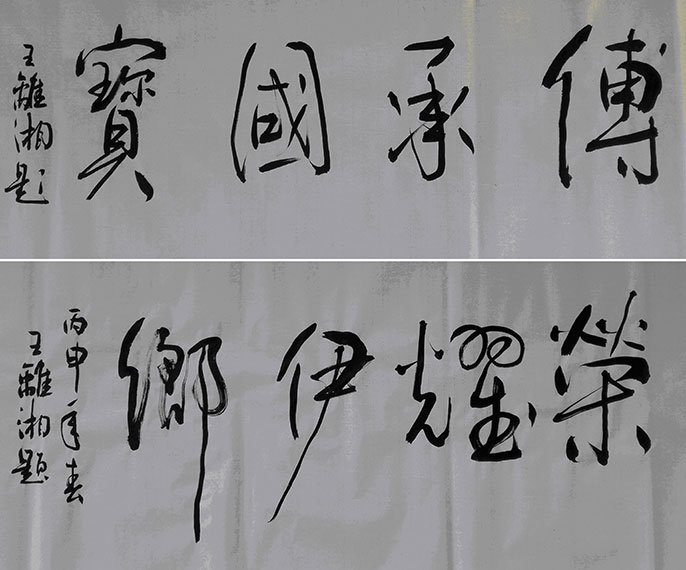 傳承國寶
王離湘題
榮耀伊鄉
丙申年春
王離湘題